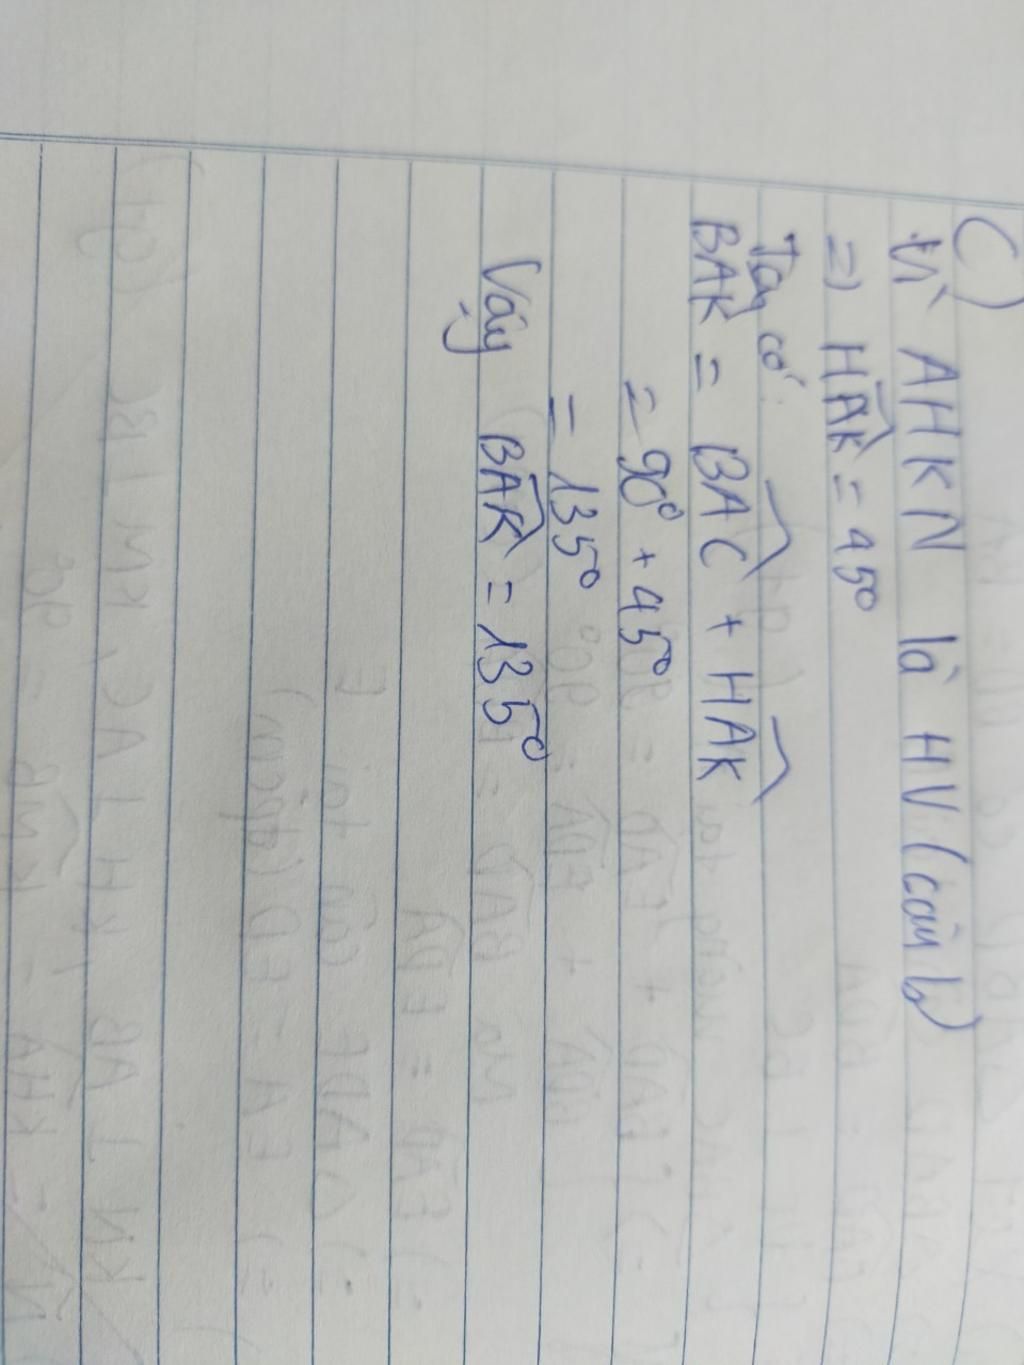 C)
Vì AHKN là HV (câu b)
=) HAK = 45°
Tay có:
BAK = BAC + HAK
= 90° + 45°
= 135°
Vậy BAK = 135°